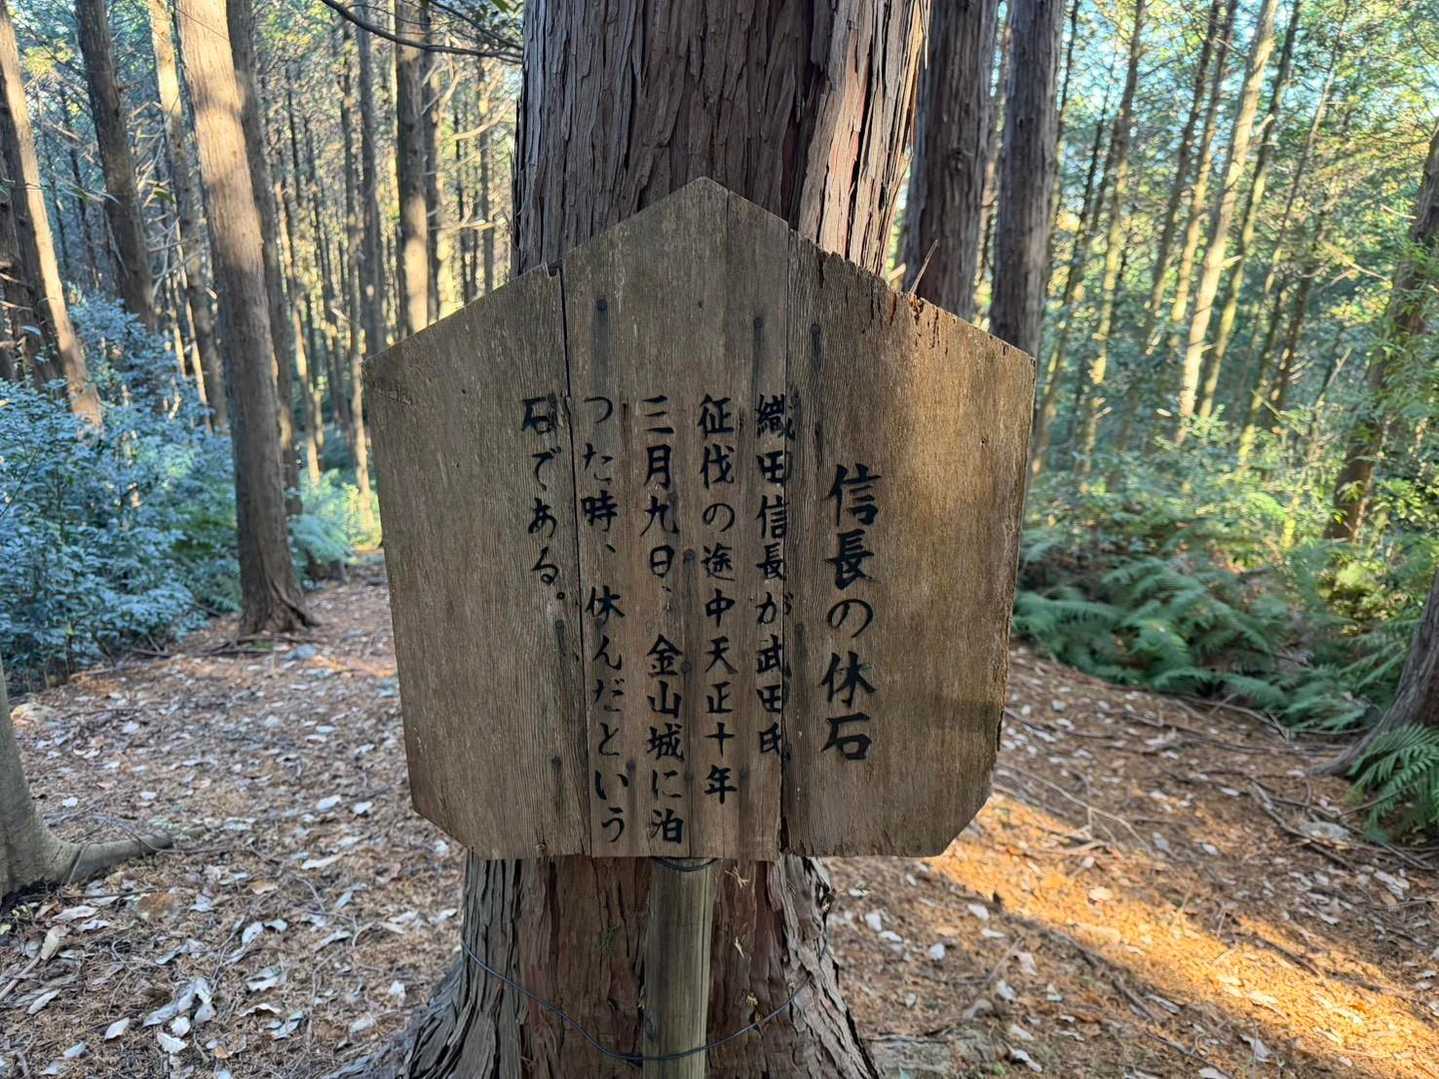 信長の休石
織田信長が武田氏
征伐の途中天正十年
三月九日、金山城に泊
つた時、休んだという
石である。